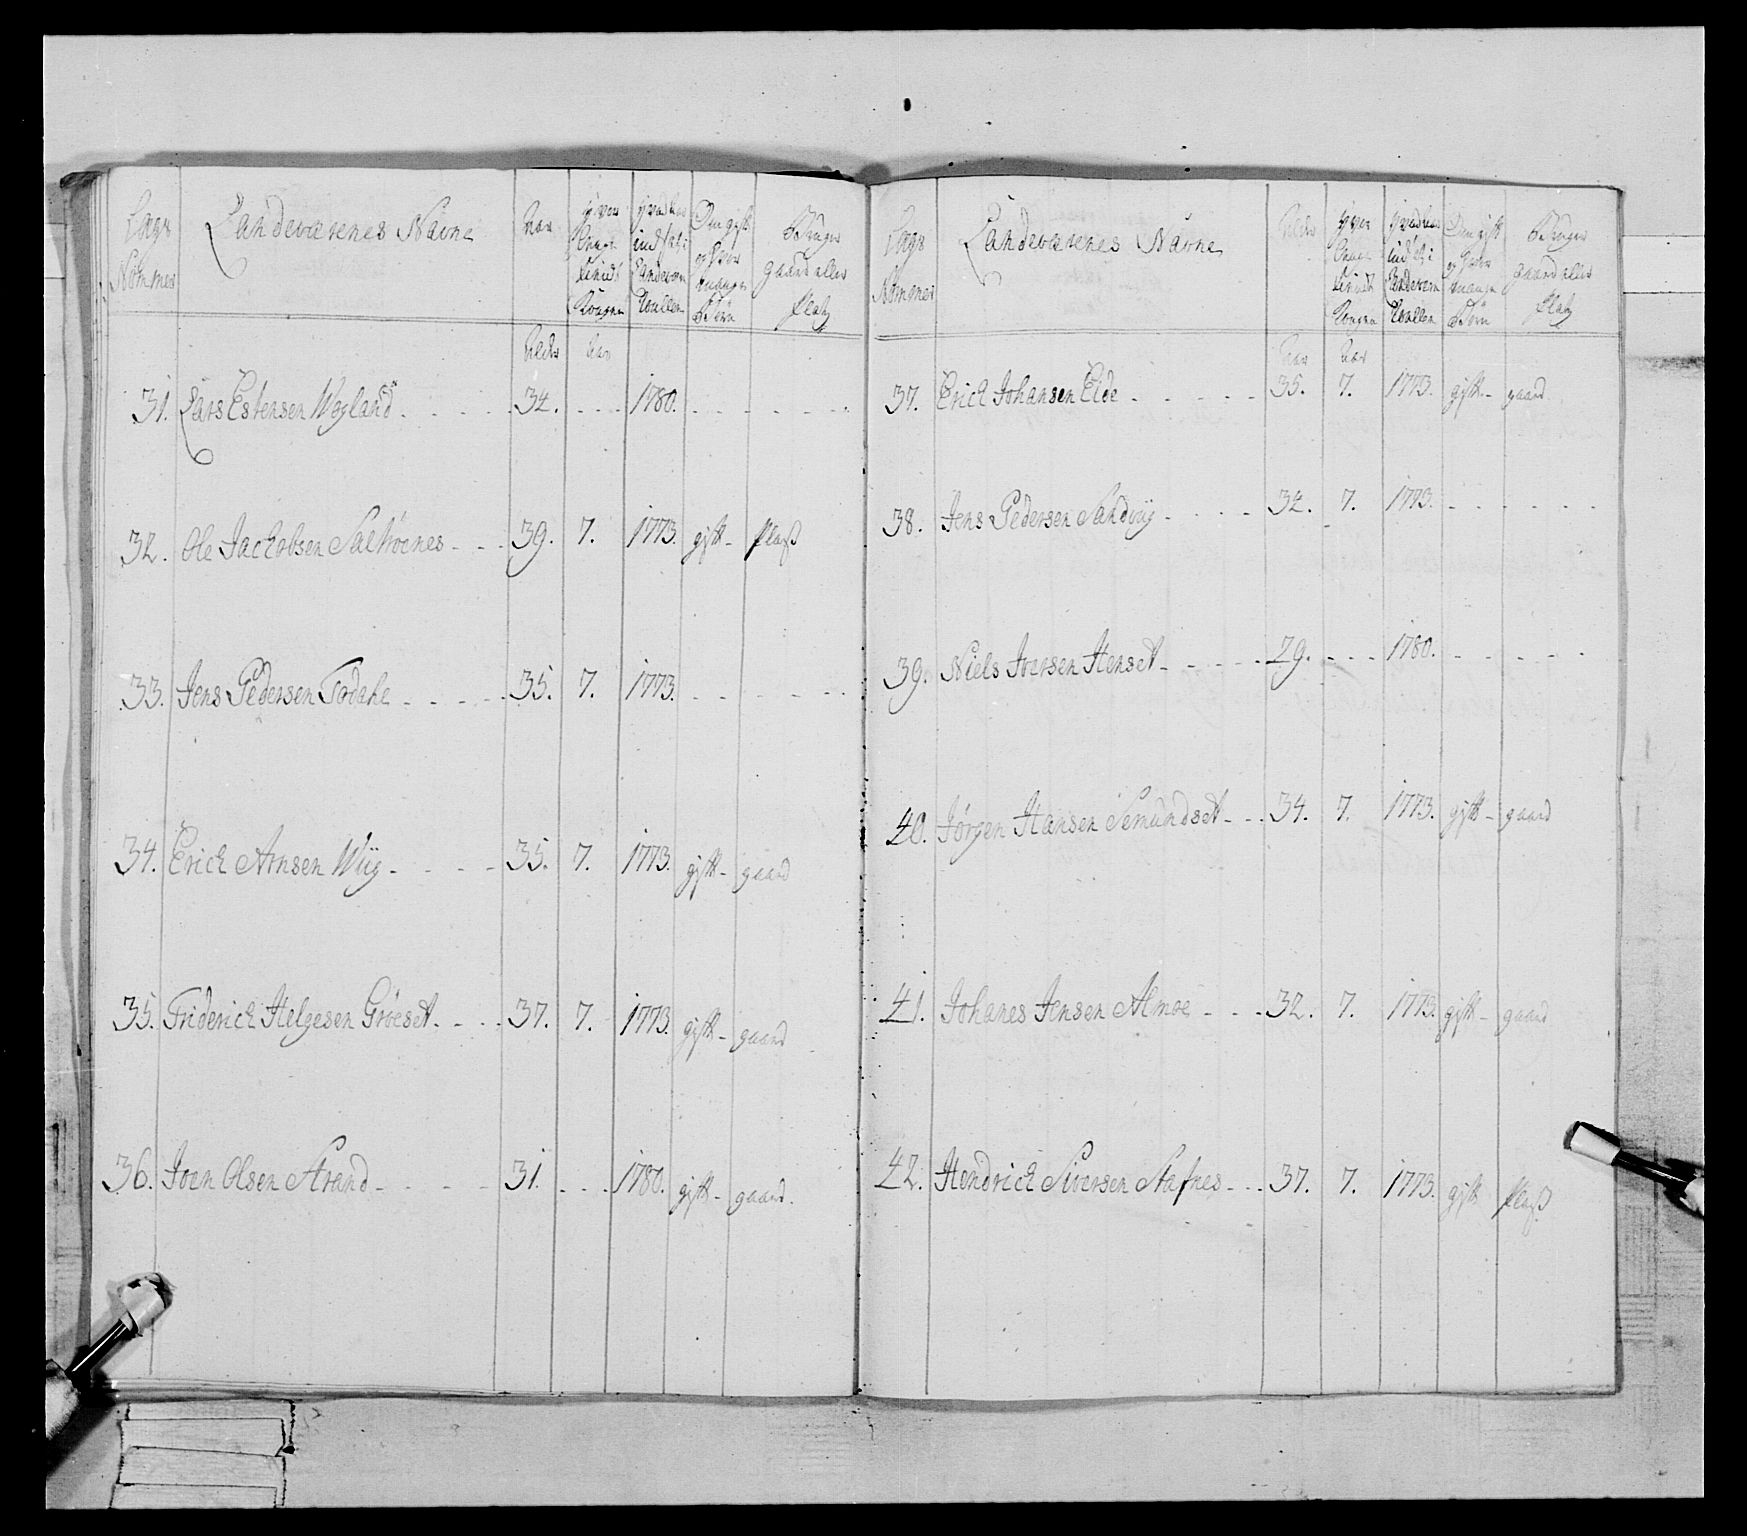 Lægs Nommer Landeværenes Navne Aar Hvor længe tient Kongen Hvad aar indsat i Landeværn Rullen Om gift og hvor mange Børn Bruger gaard eller Platz
Alder Aar
31. Lars Estensen Wogland 34. 1780.
32. Ole Jachobsen Saltrøenes 39. 7. 1773. gift Platz
33. Jens Pedersen Todahl 35. 7. 1773.
34. Erich Arnsen Wiig 35. 7. 1773. gift gaard
35. Friderich Helgesen Grøeset 37. 7. 1773. gift gaard
36. Joen Olsen Strand 31. 1780. gift gaard.
Lægs Nommer Landeværenes Navne Alder Hvor længe tient Kongen Hvad aar indsat i Landeværn Rullen Om gift og hvor mange Børn Bruger gaard eller Platz
Aar Aar
37. Erich Johansen Eide 35. 7. 1773. gift gaard
38. Jens Pedersen Sandviig 34. 7. 1773.
39. Niels Iversen Henset 29. 1780.
40. Jørgen Hansen Semundset 34. 7. 1773. gift gaard
41. Johanes Jensen Almoe 32. 7. 1773. gift gaard
42. Hendrich Siversen Stafnes 37. 7. 1773. gift Platz